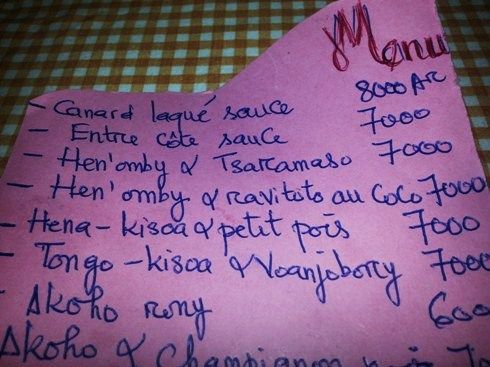 Menu
- Canard laqué sauce 8000 Ar
- Entre côte sauce 7000
- Hen'omby & Tsaramaso 7000
- Hen'omby & ravitoto au coco 7000
- Hena-kisoa & petit pois 7000
- Tongo-kisoa & Voanjobory 7000
- Akoho rony 600
Akoho & Champignon